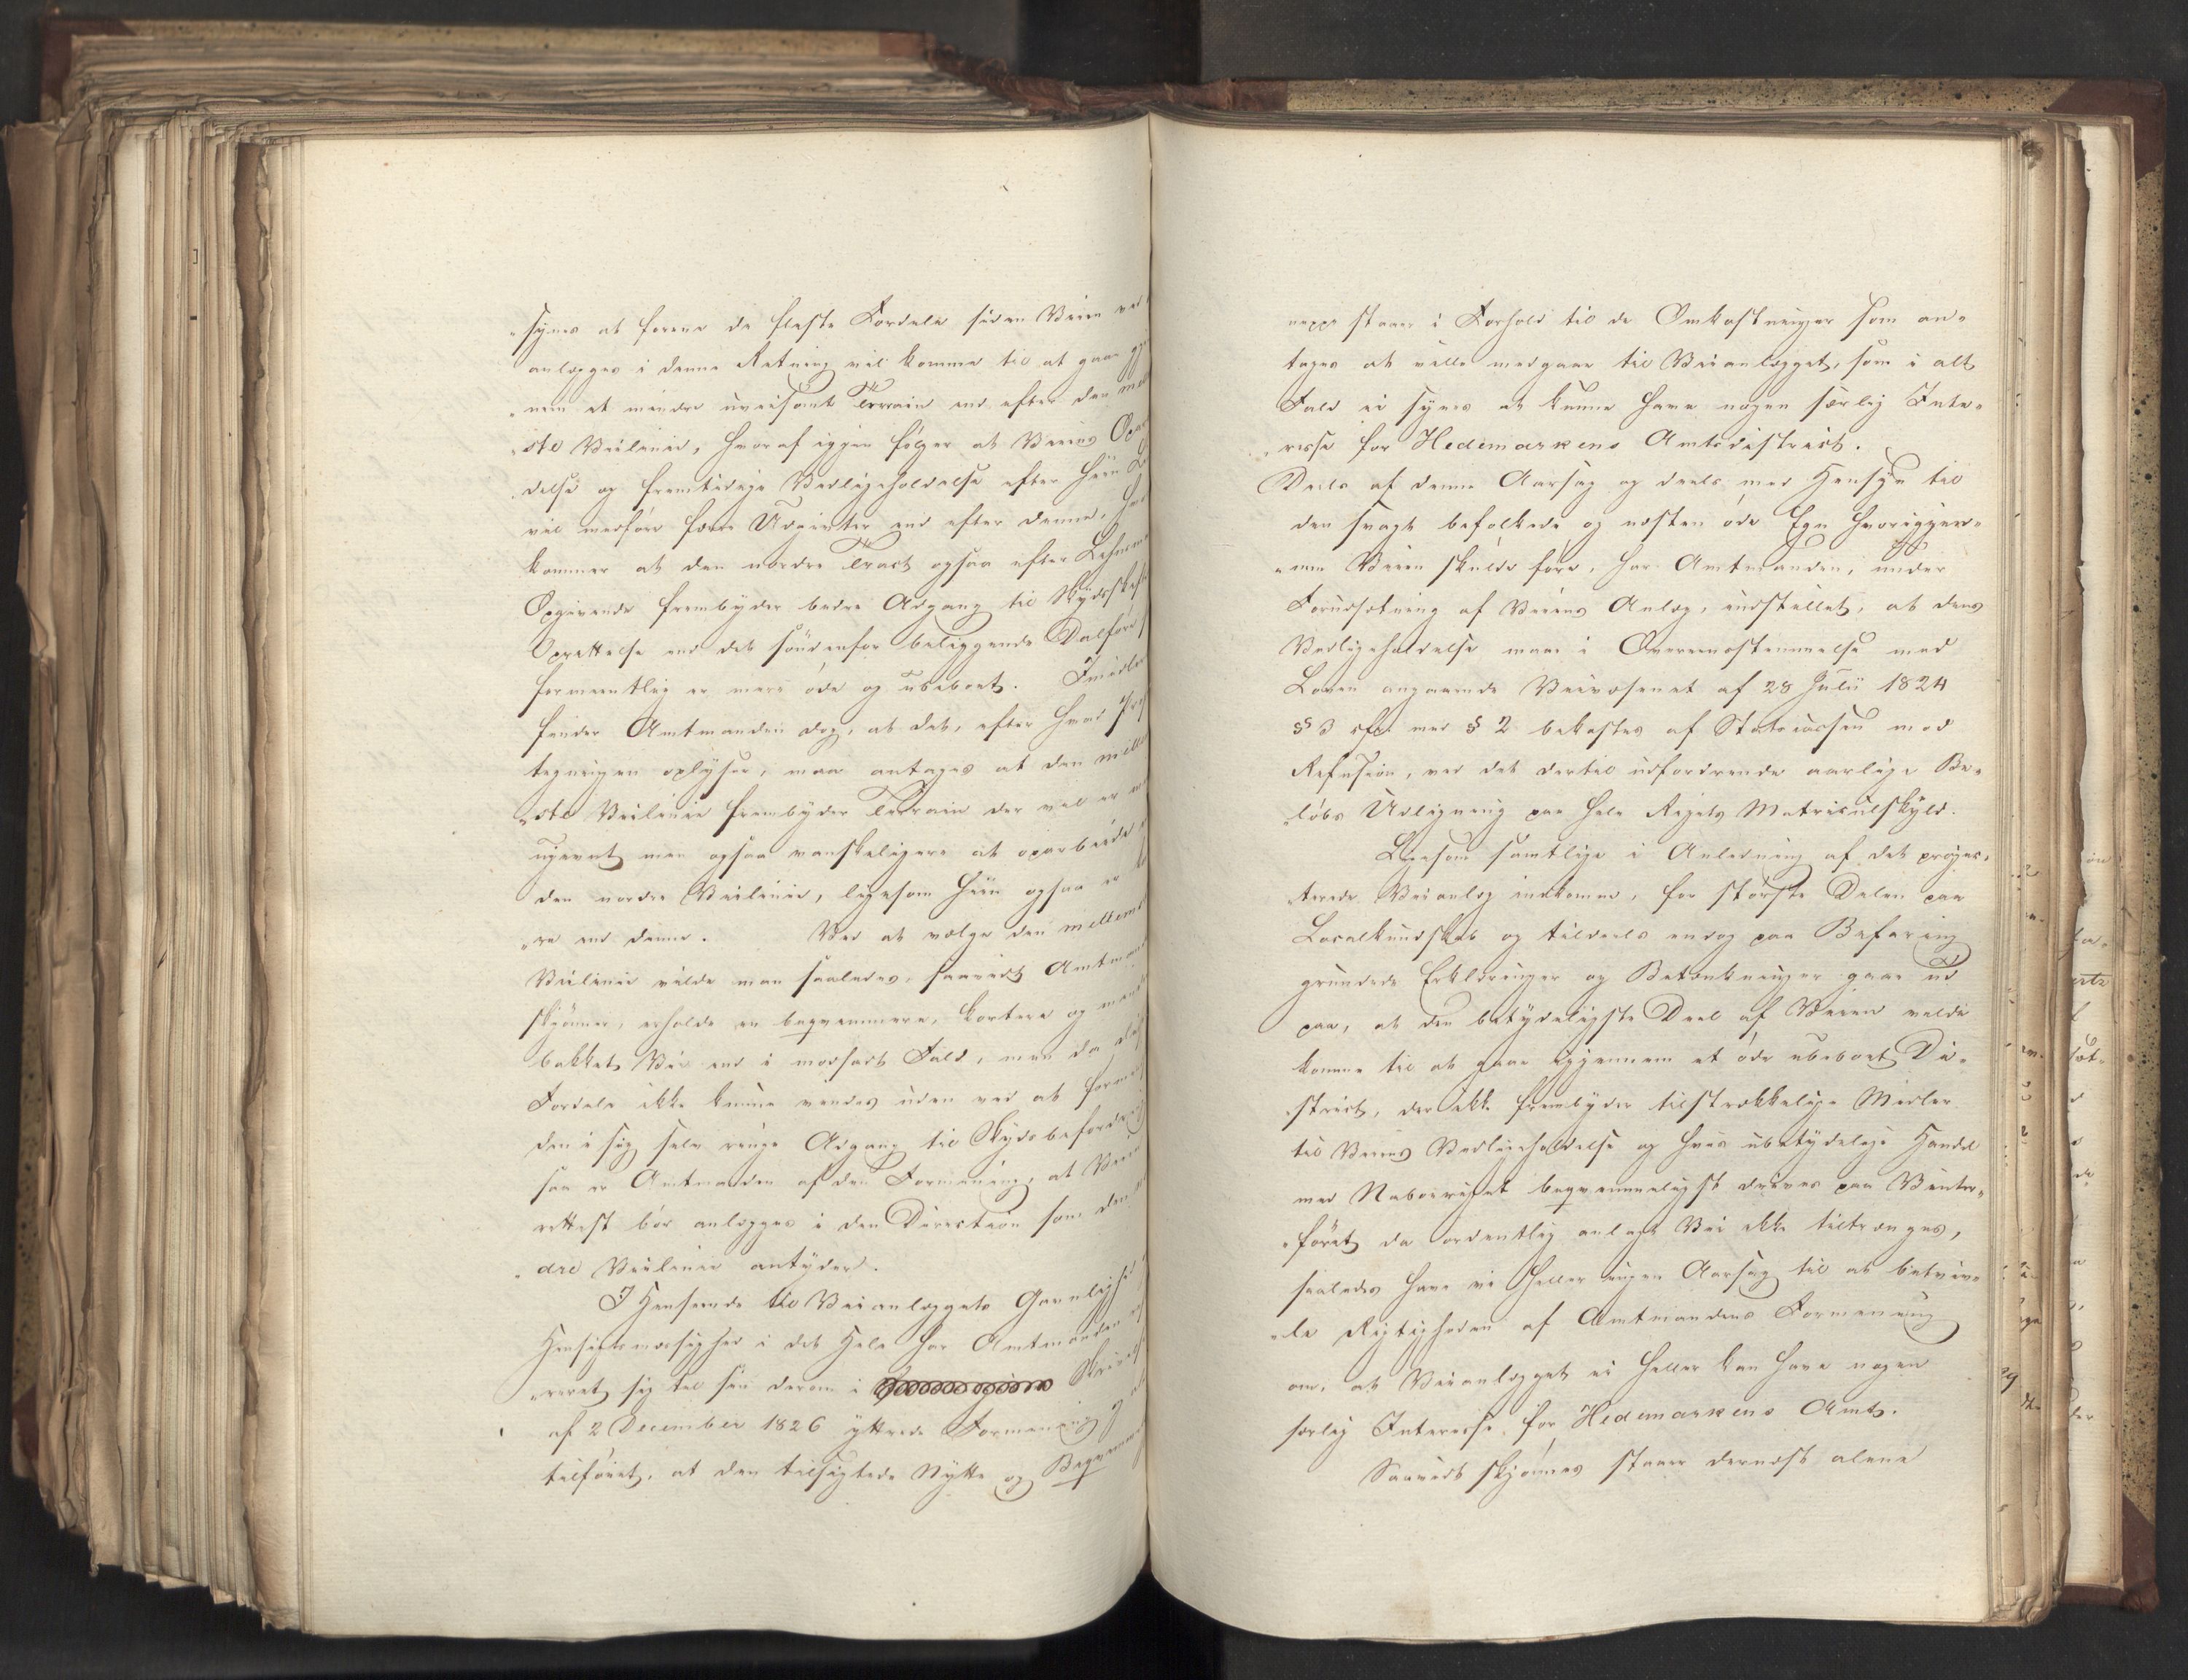 „synes at forene de fleste Fordele siden Veien ved
anlægges i denne Retning vil komme til at gaae
„nem et mindre uveisomt Terrain end efter den
„ste Veilinie, hvoraf igjen følger at Veiens
„delse og fremtidige Vedligeholdelse efter hiin
vil medføre færre Udgivter end efter denne,
kommer at den nordre Tract ogsaa efter
Opgivende frembyder bedre Adgang til
Oprettelse end det søndenfor beliggende Dalføre
formeentlig er mere øde og ubeboet.
finder Amtmanden dog, at det, efter hvad
tegningen oplyser, maa antages at den
„ste Veilinie frembyder Terrain der vel er
ujevnt men ogsaa vanskeligere at oparbeide
den nordre Veilinie, ligesom hiin ogsaa er
„re end denne. Ved at vælge den
Veilinie vilde man saaledes, saavidt
skjønnes, erholde en beqvemmere, kortere og
bakket Vei end i modsadt Fald, men da
Fordele ikke kunne vindes uden ved at
den i sig selv ringe Adgang til
saa er Amtmanden af den Formening, at
rettest bør anlægges i den Direction som den
„dre Veilinie antyder.
I Henseende til Veianlæggets
Hensigtsmæssighed i det Hele har Amtmanden
„reret sig til sin derom i
af 2 December 1826 yttrede Formening
tilføiet, at den tilsigtede Nytte og
neppe staaer i Forhold til de Omkostninger som an„
tages at ville medgaae til Veianlægget, som i alt
Fald ei synes at kunne have nogen særlig Inte„
„resse for Hedemarkens Amtsdistrict.
Deels af denne Aarsag og deels med Hensyn til
den svagt befolkede og næsten øde Egn hvorigjen„
„nem Veien skulde føre, har Amtmanden, under
Forudsætning af Veiens Anlæg, indstillet, at dens
Vedligeholdelse maae i Overeensstemmelse med
Loven angaaende Veivæsenet af 28 Julii 1824
§ 3 cfr. med § 2 bekostes af Statscassen mod
Refusion, ved det dertil udfordrende aarlige Be„
„løbs Udligning paa hele Rigets Matriculskyld.
Ligesom samtlige i Anledning af det projec„
„terede Veianlæg indkomne, for største Delen paa
Localkundskab og tildeels endog paa Befaring
grundede Erklæringer og Betænkninger gaae ud
paa, at den betydeligste Deel af Veien vilde
komme til at gaae igjennem et øde ubeboet Di„
„strict, der ikke frembyder tilstrækkelige Midler
til Veiens Vedligeholdelse og hvis ubetydelige Handel
med Naboeriget beqvemmeligst drives paa Vinter„
„føret, da ordentlig anlagt Vei ikke tiltrænges,
saaledes have vi heller ingen Aarsag til at betviv„
„le Rigtigheden af Amtmandens Formening
om, at Veianlægget ei heller kan have nogen
særlig Interesse for Hedemarkens Amt.
Saavidt skjønnes staaer dernæst alene